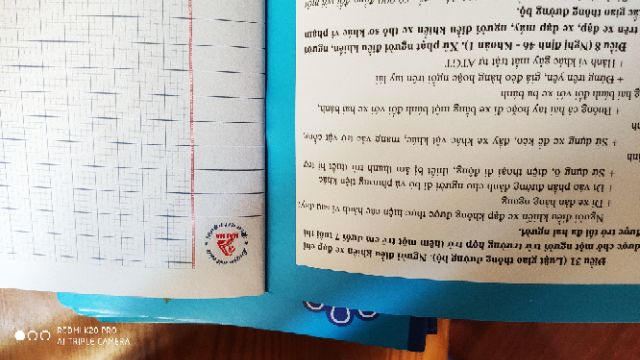 Điều 31 (Luật giao thông đường bộ). Người điều khiển xe đạp chỉ
được chở một người trừ trường hợp chở thêm một trẻ em dưới 7 tuổi thì
được chở tối đa hai người.
Người điều khiển xe đạp không được thực hiện các hành vi sau đây:
+ Đi xe dàn hàng ngang
+ Đi vào phần đường dành cho người đi bộ và phương tiện khác
+ Sử dụng ô, điện thoại di động, thiết bị âm thanh trừ thiết bị trợ
thính
+ Sử dụng xe để kéo, đẩy xe khác vật khác, mang vác vật cồng
kềnh
+ Buông cả hai tay hoặc đi xe bằng một bánh đối với xe hai bánh,
hai bánh đối với xe ba bánh
+ Đứng trên yên, giá đèo hàng hoặc ngồi trên tay lái
+ Hành vi khác gây mất trật tự ATGT
Điều 8 (Nghị định 46 - Khoản 1). Xử phạt người điều khiển, người
trên xe đạp, xe đạp máy, người điều khiển xe thô sơ khác vi phạm
tắc giao thông đường bộ.
HẢI HÀ
REDMI K20 PRO
AI TRIPLE CAMERA